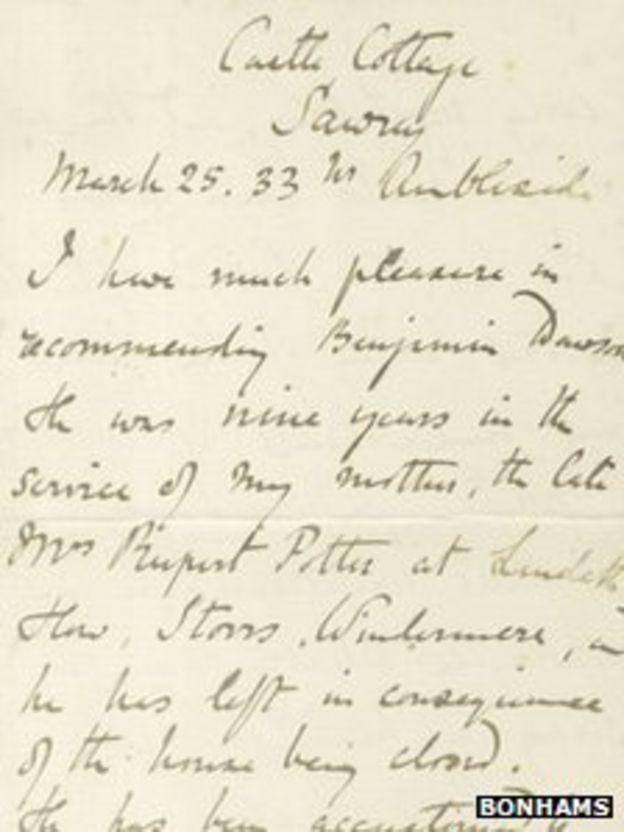 Castle Cottage
Sawrey
March 25. 33 nr Ambleside
I have much pleasure in
recommending Benjamin Dawson
He was nine years in the
service of my mother, the late
Mrs Rupert Potter at Lindeth
How, Storrs, Windermere, and
he has left in consequence
of the house being closed.
He has been accustomed to
BONHAMS